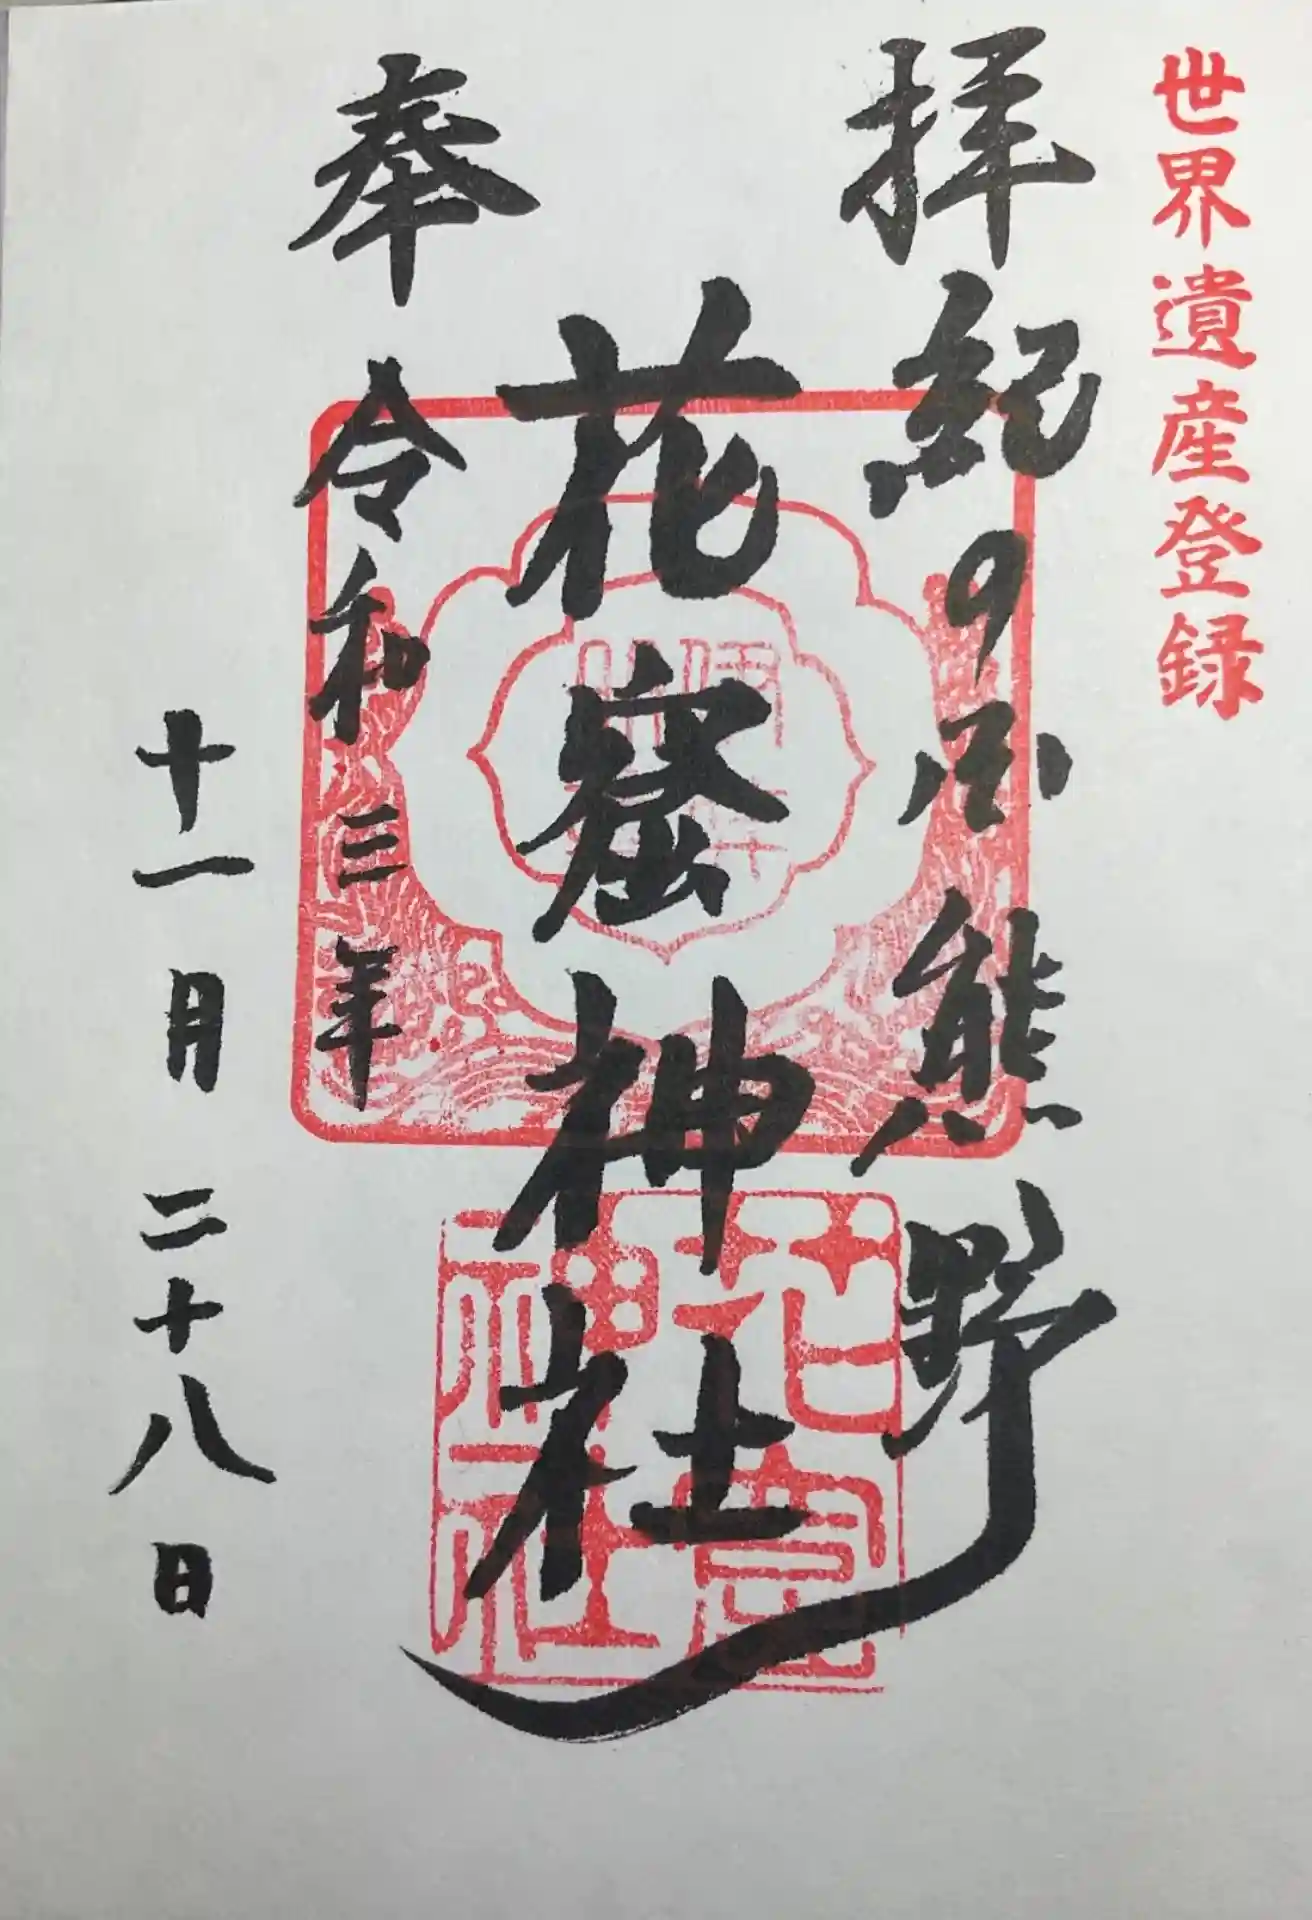 世界遺産登録
拝
奉
紀の国熊野
花窟神社
令和三年
十一月二十八日
花窟
神社